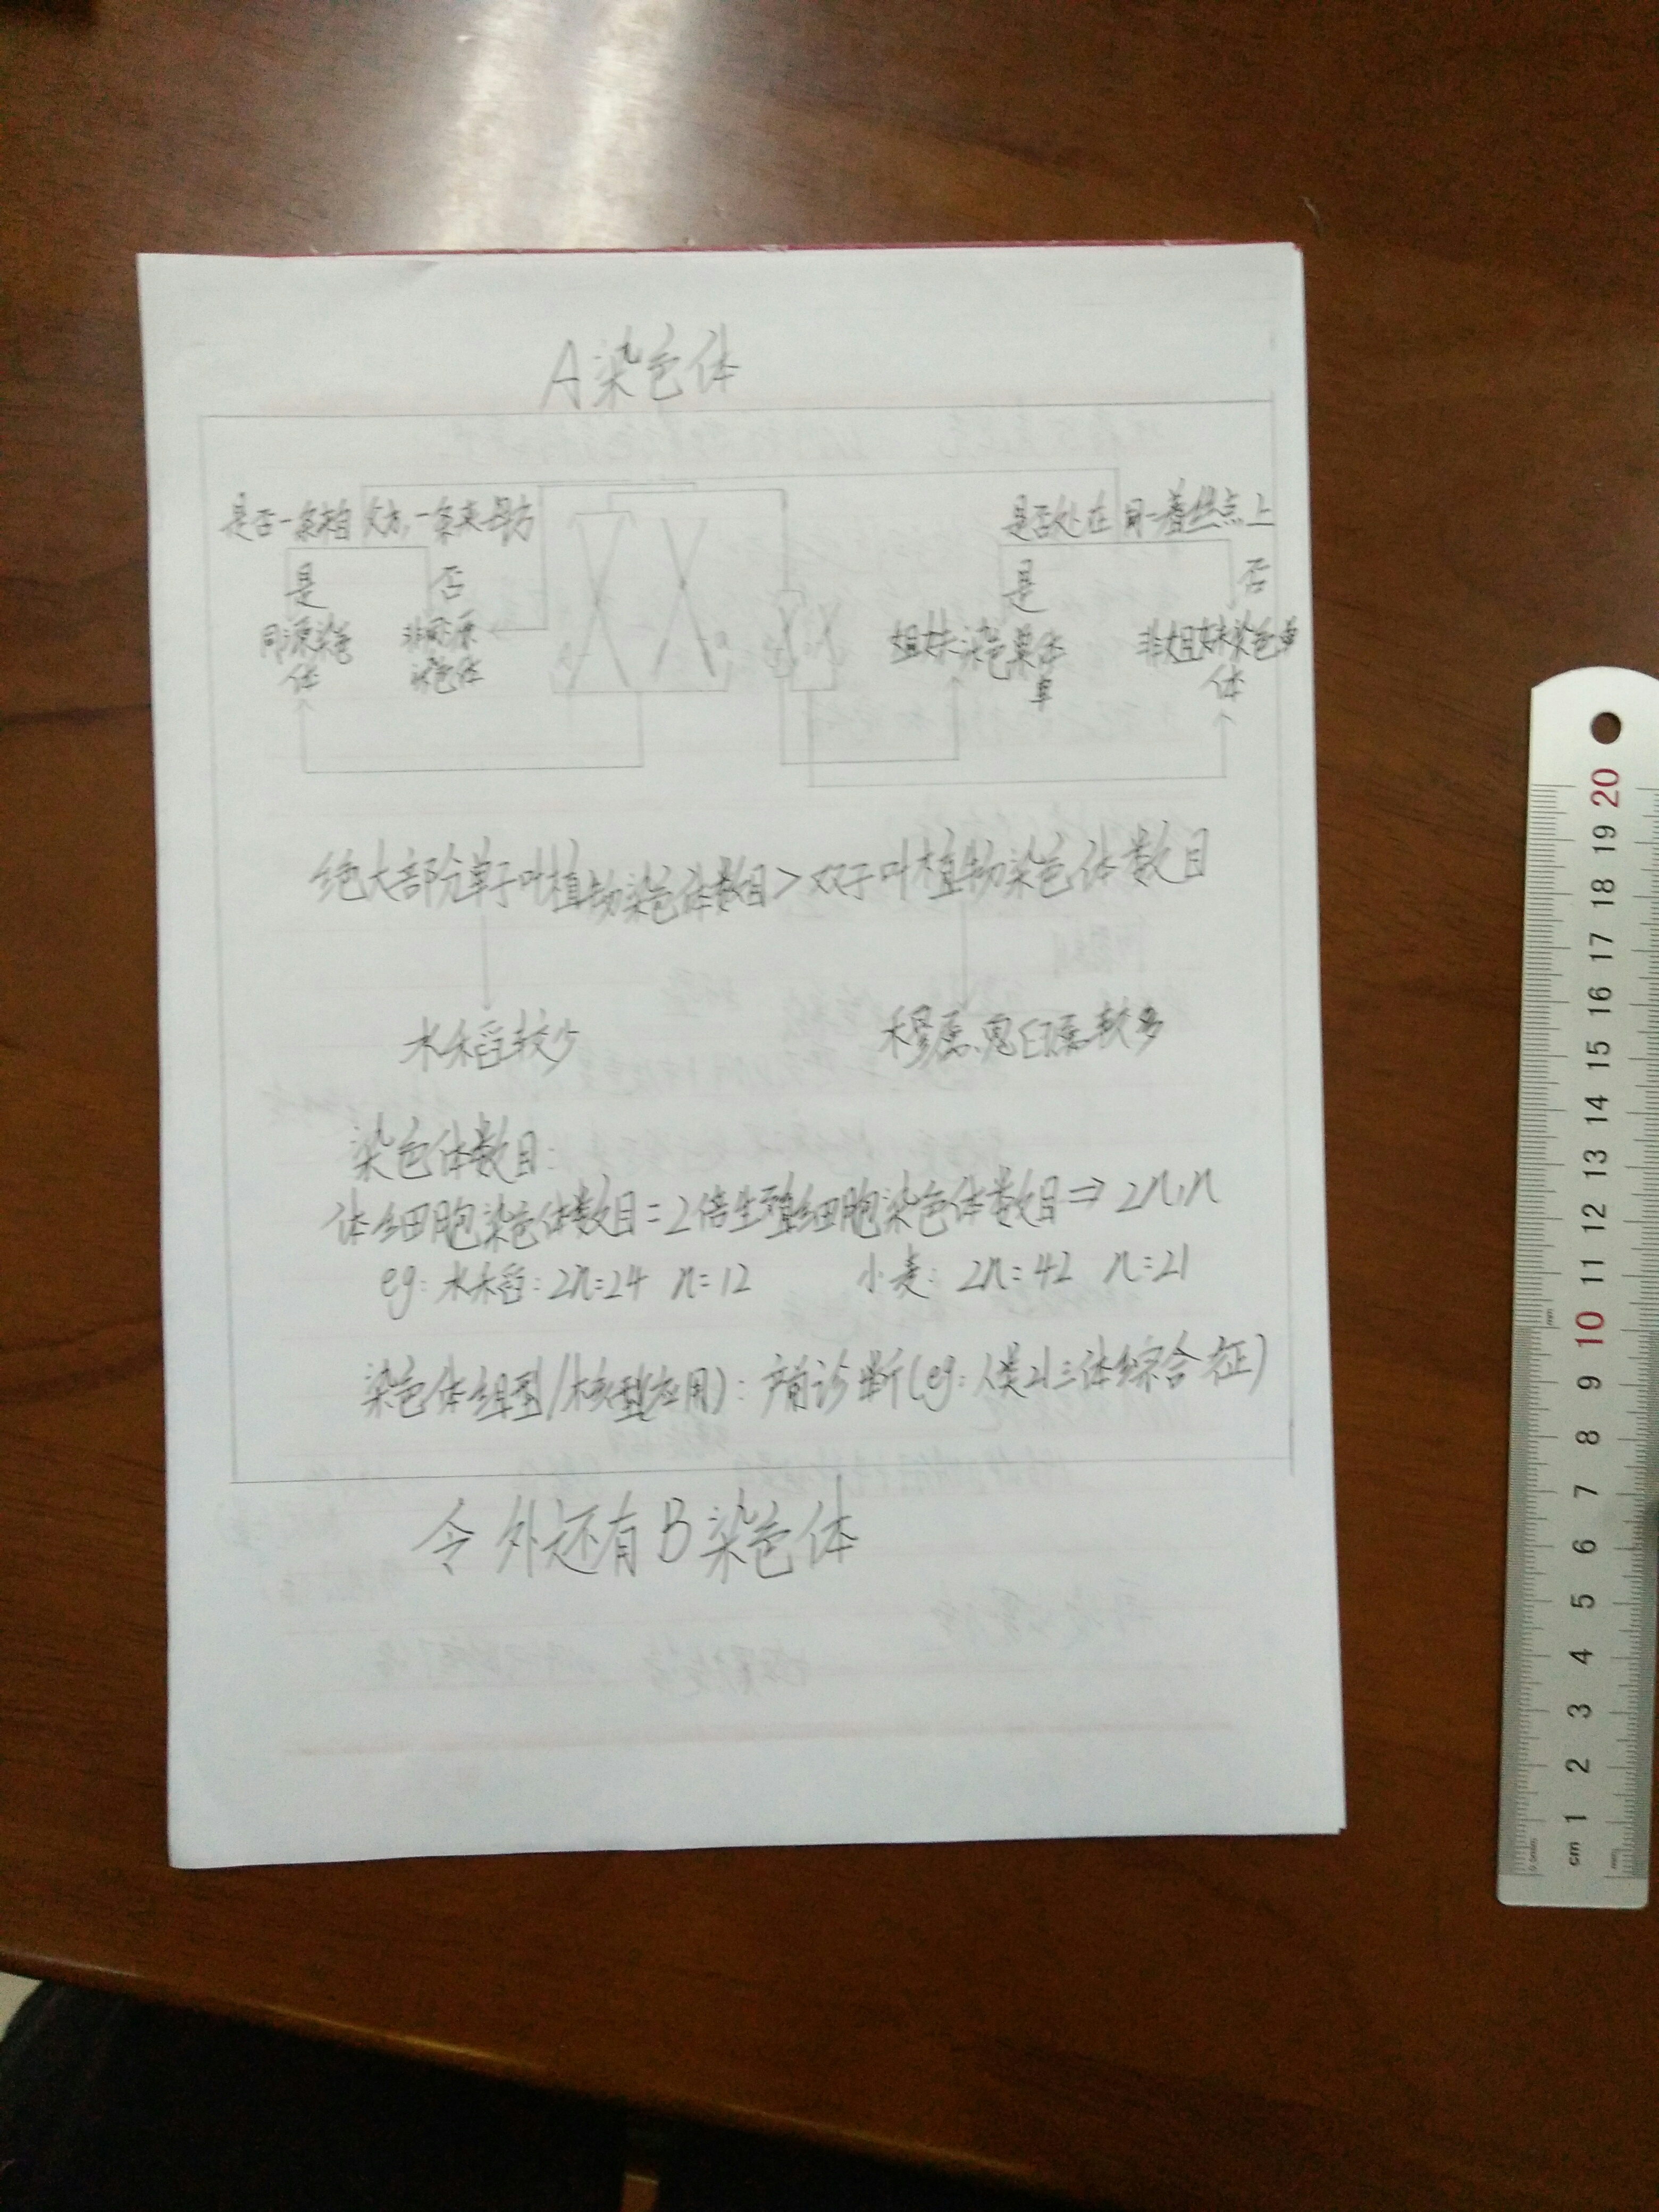 A染色体
是否一条来自父方,一条来母方
是否处在同一着丝点上
是
否
是
否
同源染色
体
非同源
染色体
姐妹染色单体
非姐妹染色单
体
绝大部分单子叶植物染色体数目>双子叶植物染色体数目
水稻较少
鬼臼属较多
染色体数目:
体细胞染色体数目=2倍生殖细胞染色体数目⇒2n,n
eg:水稻:2n=24 n=12 小麦:2n=42 n=21
染色体组型/核型应用):产前诊断(eg:人类21三体综合征)
令外还有B染色体
20
19
18
17
16
15
14
13
12
11
10
9
8
7
6
5
4
3
2
1
cm